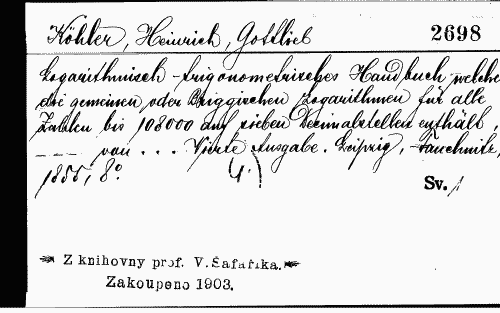 Köhler, Heinrich, Gottlieb 2698
Logarithmisch-trigonometrisches Handbuch, welches
die gemeinen oder Briggischen Logarithmen für alle
Zahlen bis 108000 auf sieben Decimalstellen enthält,
--- von ... Vierte Ausgabe. Leipzig, Tauchnitz,
1855, 8° 4.) Sv. 1
Z knihovny prof. V. Šafaříka.
Zakoupeno 1903.